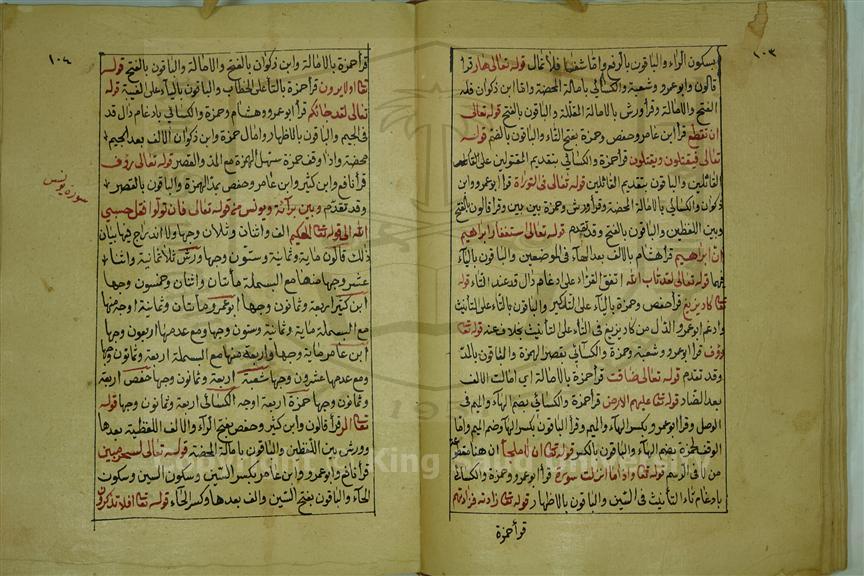 ١٠٣
بسكون الراء والباقون بالرفع واتفقوا شفا فلا تمال قوله تعالى هار قرأ
قالون وابو عمرو وشعبة والكسائي بامالة المحضة واما ابن ذكوان فله
الفتح والامالة وقرأ ورش بالامالة المقللة والباقون بالفتح قوله تعالى
ان تقطع قرأ ابن عامر وحفص وحمزة بفتح التاء والباقون بالضم قوله
تعالى فيقتلون ويقتلون قرأ حمزة والكسائي بتقديم المقتولين على
القاتلين والباقون بتقديم القاتلين قوله تعالى في التوراة قرأ ابو عمرو وابن
ذكوان والكسائي بالامالة المحضة وقرأ ورش وحمزة بين بين وقرأ قالون بالفتح
وبين اللفظين والباقون بالفتح وقد تقدم قوله تعالى استغفار ابراهيم
ان ابراهيم قرأ هشام بالالف بعد الهاء في الموضعين والباقون بالياء
فيها قوله تعالى لقد تاب الله اتفق القراء على ادغام دال قد عند التاء قوله
تعا كاد يزيغ قرأ حفص وحمزة بالياء على التذكير والباقون بالتاء على التأنيث
وادغم ابو عمرو الدال من كاد يزيغ في التاء على التأنيث بخلاف عنه قوله تعا
رؤف قرأ ابو عمرو وشعبة وحمزة والكسائي بقصر الهمزة والباقون بالمد
وقد تقدم قوله تعالى ضاقت قرأ حمزة بالامالة اي امالت الالف
بعد الضاد قوله تعا عليهم الارض قرأ حمزة والكسائي بضم الهاء والميم في
الوصل وقرأ ابو عمرو بكسر الهاء والميم وقرأ الباقون بكسر الهاء وضم الميم واما
الوقف فحمزة بضم الهاء والباقون بالكسر قوله تعا ان لا ملجأ ان هنا
من لا في الرسم قوله تعا واذا ما انزلت سورة قرأ ابو عمرو وحمزة والكسائي
بادغام تاء التأنيث في السين والباقون بالاظهار قوله تعا زادته فزادتهم
قرأ حمزة
١٠٤
قرأ حمزة بالامالة وابن ذكوان بالفتح والامالة والباقون بالفتح قوله
تعا اولا يرون قرأ حمزة بالتاء على الخطاب والباقون بالياء على الغيبة قوله
تعالى لقد جاءكم قرأ ابو عمرو وهشام وحمزة والكسائي بادغام دال قد
في الجيم والباقون بالاظهار وامال حمزة وابن ذكوان الالف بعد الجيم
محضة واذا وقف حمزة سهل الهمزة مع المد والقصر قوله تعالى رؤف
قرأ نافع وابن كثير وابن عامر وحفص بمد الهمزة والباقون بالقصر
وقد تقدم وبين برآءة ويونس من قوله تعالى فان تولوا فقل حسبي
الله الى قوله تعا الحكيم الف واثنان وثلاثون وجها ولا اندراج فيها بيان
ذلك قالون ماية وثمانية وستون وجها ورش ثلاثماية واثنا
عشر وجها منها مع البسملة مأتان واثنان وخمسون وجها
ابن كثير اربعة وثمانون وجها ابو عمرو مأتان وثمانية اوجه منها
مع البسملة ماية وثمانية وستون وجها ومع عدمها اربعون وجها
ابن عامر ماية وجها واربعة منها مع البسملة اربعة وثمانون وجها
ومع عدمها عشرون وجها شعبة اربعة وثمانون وجها حفص اربعة
وثمانون وجها حمزة اربعة اوجه الكسائي اربعة وثمانون وجها قوله
تعا الر قرأ قالون وابن كثير وحفص بفتح الراء والالف اللفظية بعدها
وورش بين اللفظين والباقون بامالة المحضة قوله تعالى لسحر مبين
قرأ نافع وابو عمرو وابن عامر بكسر السين وسكون
الحاء والباقون بفتح السين والف بعدها وكسر الحاء قوله تعا افلا تذكرون
سورة يونس